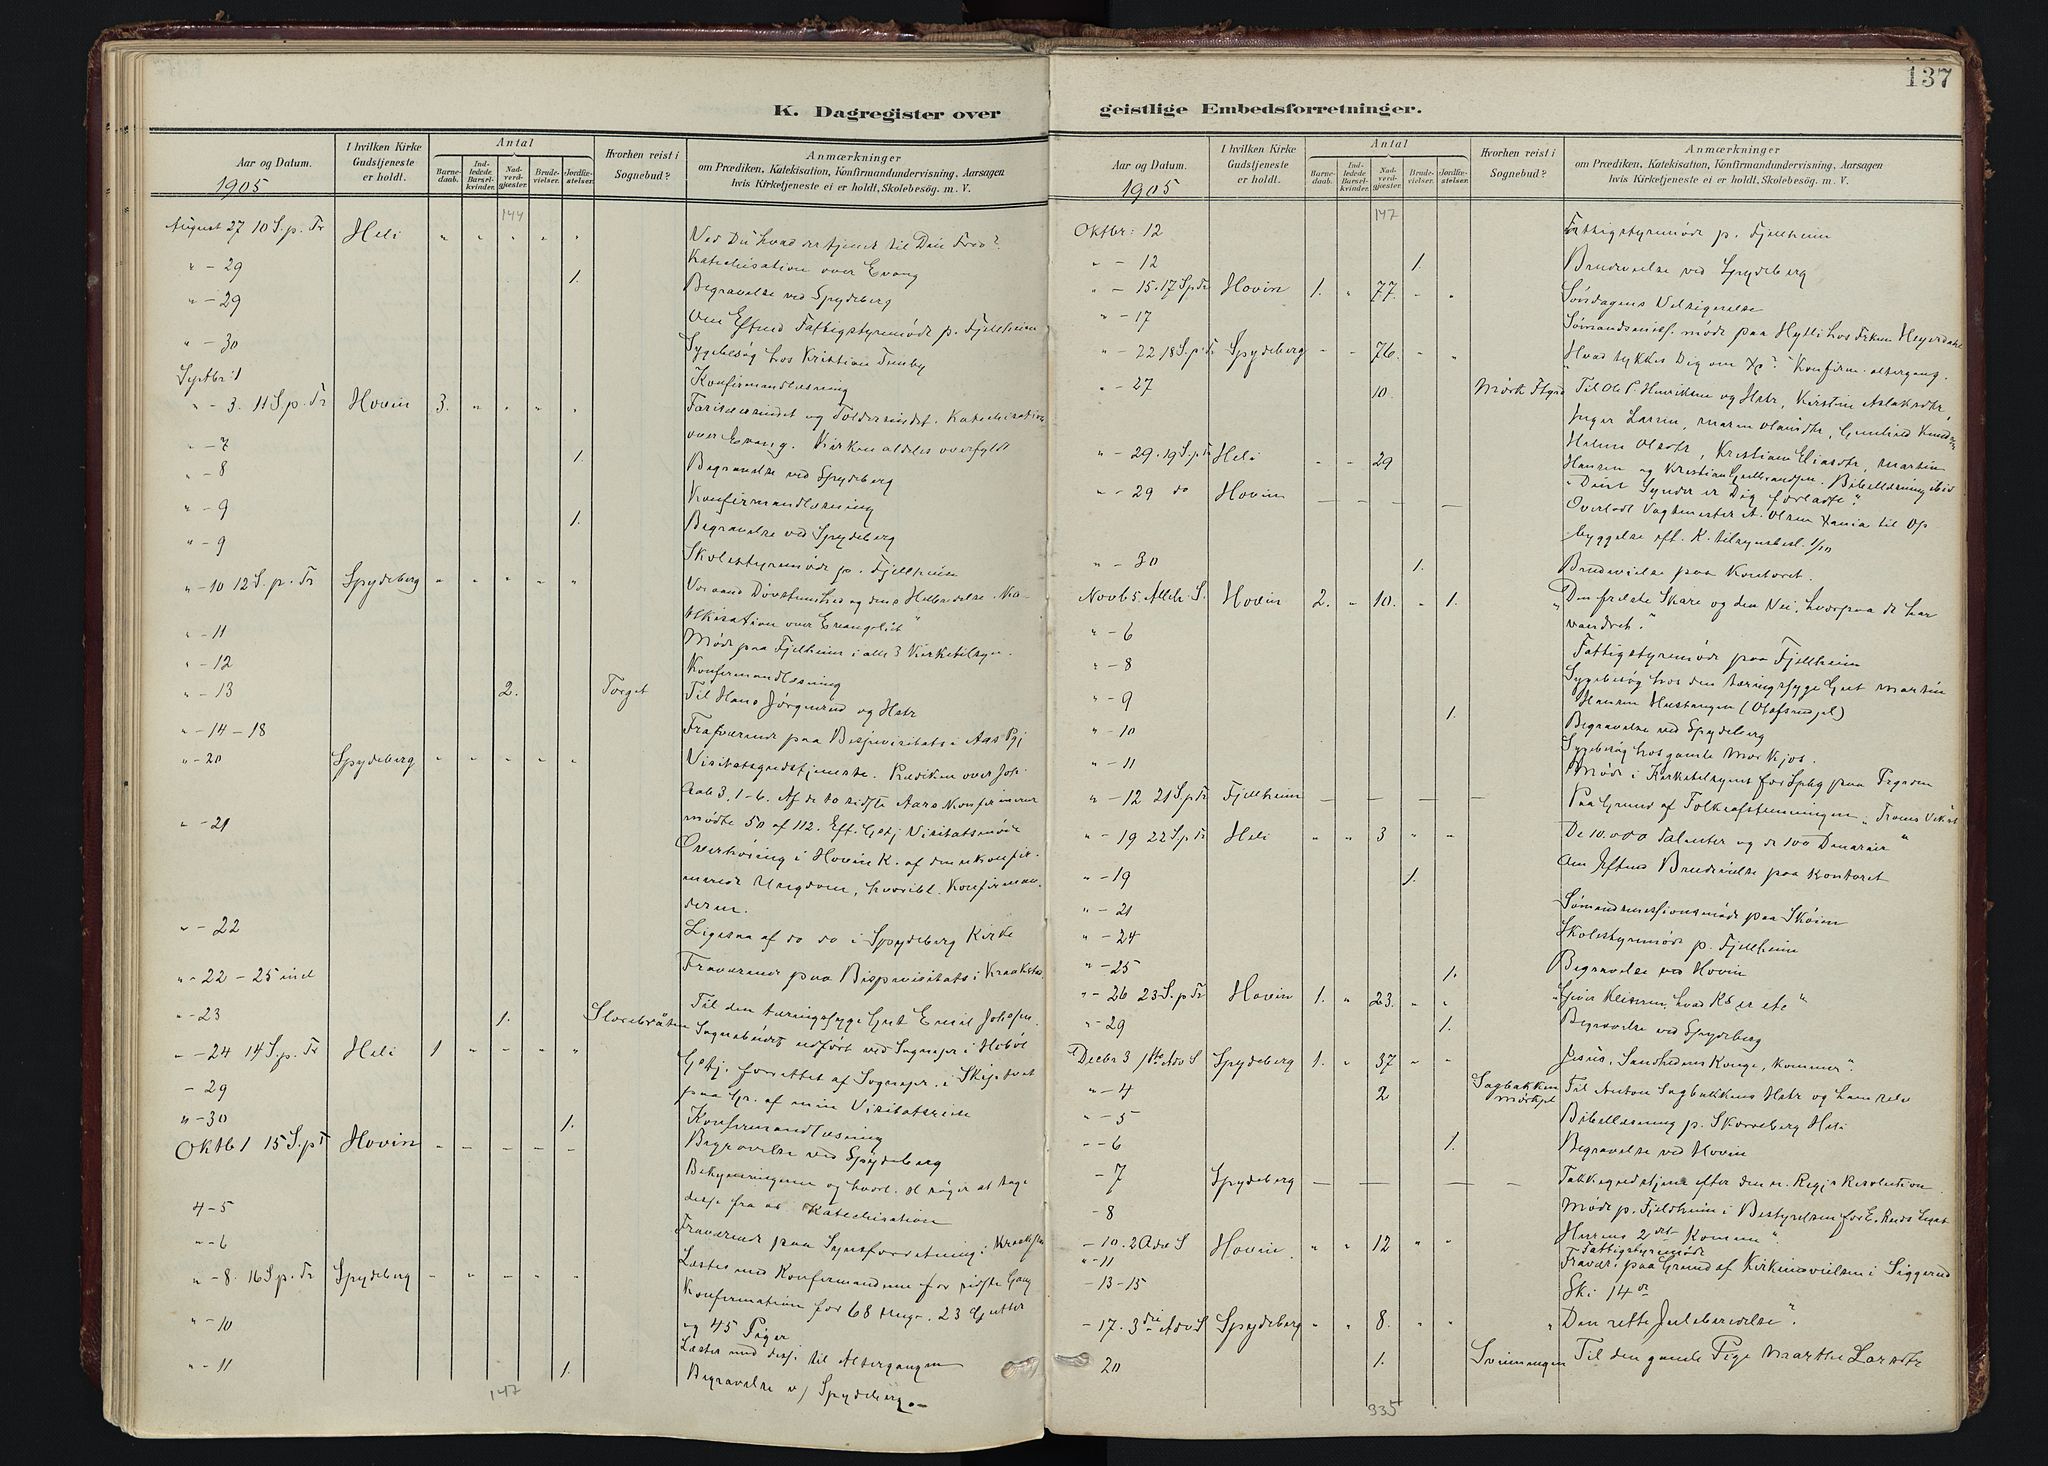 137
K. Dagregister over
Aar og Datum.
I hvilken Kirke Gudstjeneste er holdt.
Antal
Barnedaab.
Indledede Barselkvinder.
Nadverdgjæster.
Brudevielser.
Jordfæstelser.
Hvorhen reist i Sognebud?
Anmærkninger
om Prædiken, Katekisation, Konfirmandundervisning, Aarsagen
hvis Kirketjeneste ei er holdt, Skolebesög. m. V.
1905
144
August 27 10 S. p. Tr Heli " " " " " Ved Du hvad der tjener til Din Fred?
Katechisation over Evang
" - 29 1. Begravelse ved Spydeberg
" - 29 Om Eftmd Fattigstyremøde p. Fjellheim
" - 30 Sygebesøg hos Kristian
Septbr 1 Konfirmandlæsning
" - 3. 11 S. p. Tr Hovin 3. " " " " Farisæersindet og Toldersindet. Katechisation
over Evang. Kirken aldeles overfyldt
" - 7 1. Begravelse ved Spydeberg
" - 8 Konfirmandlæsning
" - 9 1. Begravelse ved Spydeberg
" - 9 Skolestyremøde p. Fjellheim
" - 10 12 S. p. Tr Spydeberg " " " " " Vor aand Døvstumhed og dens Helbredelse. Ka-
tekisation over Evangeliet"
" - 11 Møde paa Fjelheim i alle 3 Kirketilsyn.
" - 12 Konfirmandlæsning
" - 13 2. Torget Til Hans Jørgensrud og Hstr
" - 14 - 18 Fraværende paa Bispevisitats i Aas Pgj
" - 20 Spydeberg " " " " " Visitatsgudstjeneste. Prædiken over Joh.
Aab 3, 1-6. Af de 10 sidste Aars Konfirmerer
mødte 50 af 112. Eft. Gstj Visitatsmøde
" - 21 Overhøring i Hovin K. af den ukonfir-
merede Ungdom, hvoribl. Konfirman-
derne.
" - 22 Ligesaa af do do i Spydeberg Kirke
" - 22 - 25 incl Fraværende paa Bispevisitats i Kraakstad
" - 23 1. Til den tæringssyge Gut Emil Johsen.
Sognebudet udført ved Sognepr i Hobøl
" - 24 14 S. p. Tr Heli 1 " " " " Gstj. forrettet af Sognepr. i Skiptvet
paa Gr. af min Visitatsreise
- 29 Konfirmandlæsning
" - 30 1. Begravelse ved Spydeberg
Oktb 1 15 S. p T Hovin - - - - - Bekymringerne og hvorl. vi søger at tage
disse fra os Katechisation
4 - 5 Fraværende paa Synsforretning i
" - 6 Læstes med Konfirmanderne for sidste Gang
" - 8. 16 S. p. Tr Spydeberg - " " " " Konfirmation for 68 Unge. 23 Gutter
og 45 Piger
" - 10 Læstes med disse til Altergangen
" - 11 1. Begravelse v/ Spydeberg.
147
geistlige Embedsforretninger.
Aar og Datum.
I hvilken Kirke Gudstjeneste er holdt.
Antal
Barnedaab.
Indledede Barselkvinder.
Nadverdgjæster.
Brudevielser.
Jordfæstelser.
Hvorhen reist i Sognebud?
Anmærkninger
om Prædiken, Katekisation, Konfirmandundervisning, Aarsagen
hvis Kirketjeneste ei er holdt, Skolebesög. m. V.
1905
147
Oktbr: 12 Fattigstyremøde p. Fjellheim
" - 12 1. Brudevielse ved Spydeberg
" - 15. 17 S p Tr Hovin 1. " 77. " " Søndagens Velsignelse
" - 17 Sømandsmiss. møde paa Hylli hos Frken Heyerdahl
" - 22 18 S. p. Tr Spydeberg " " 76. " " Hvad tykkes Dig om Xs? Konfirm. altergang.
" - 27 10. Mørk Til Ole P. Henriksen og Hstr, Kirstine Aslaksdtr,
Inger Larsen, Maren Olavsdtr, Gunhild
Helene Olsdtr, Kristiane Eliasdtr, Martin
Hansen og Kristian Gulbrandsen. Bibellæsning ibid
" - 29. 19 S. p Tr Heli - - 29 "Dine Synder er Dig forladte".
" - 29 do Hovin - - - - - Overlodt Vagtmester A. Olsen Xania til Op
byggelse eft. K. tilsynsbesl. 1/10
" - 30 1. Brudevielse paa Kontoret.
Novb 5 Alleh. S. Hovin 2. " 10. " 1. "Den frelste Skare og den Vei, hvorpaa de har
vandret."
" - 6 Fattigstyremøde paa Fjellheim
" - 8 Sygebesøg hos den tæringssyge Gut Martin
Hansen
" - 9 1. Begravelse ved Spydeberg
" - 10 Sygebesøg hos gamle
" - 11 Møde i Kirketilsynet for Spbg paa
" - 12 21 S p Tr Fjellheim - - - - - Paa Grund af Folkeafstemningen
" - 19 22 S p Tr Heli " " 3 " " "De 10.000 Talenter og de 100 Denarier"
" - 19 1. Om Eftmd Brudevielse paa Kontoret
" - 21 Sømandsmissionsmøde paa Skøien
" - 24 Skolestyremøde p. Fjellheim
" - 25 1. Begravelse ved Hovin
" - 26 23 S. p Tr Hovin 1. " 23. " " "Giver Keiseren, hvad Ks er etc"
" - 29 1. Begravelse ved Spydeberg
Decbr 3 1ste Adv S Spydeberg 1. " 37 " " "Jesus, Sandhedens Konge, kommer".
" - 4 2 Sagbakken Til Anton Sagbakkens Hstr og ham selv
" - 5 Bibellæsning p. Skovseberg Heli
" - 6 1. Begravelse ved Hovin
- 7 Spydeberg - - - - - Takkegudstjen efter den n. Regjs Resolution
- 8 Møde p. Fjeldheim i Bestyrelsen for
- 10. 2 Adv S Hovin " " 12 " " Herrens 2det Komme".
" - 11 Fattigstyremøde
- 13 - 15 Fravær. paa Grund af Kirkeindvielsen i Siggerud
Ski 14de
- 17. 3die Adv S Spydeberg " " 8. " " "Den rette Juleberedelse".
20 1. Svenningen Til den gamle Pige Marthe Larsdtr
335